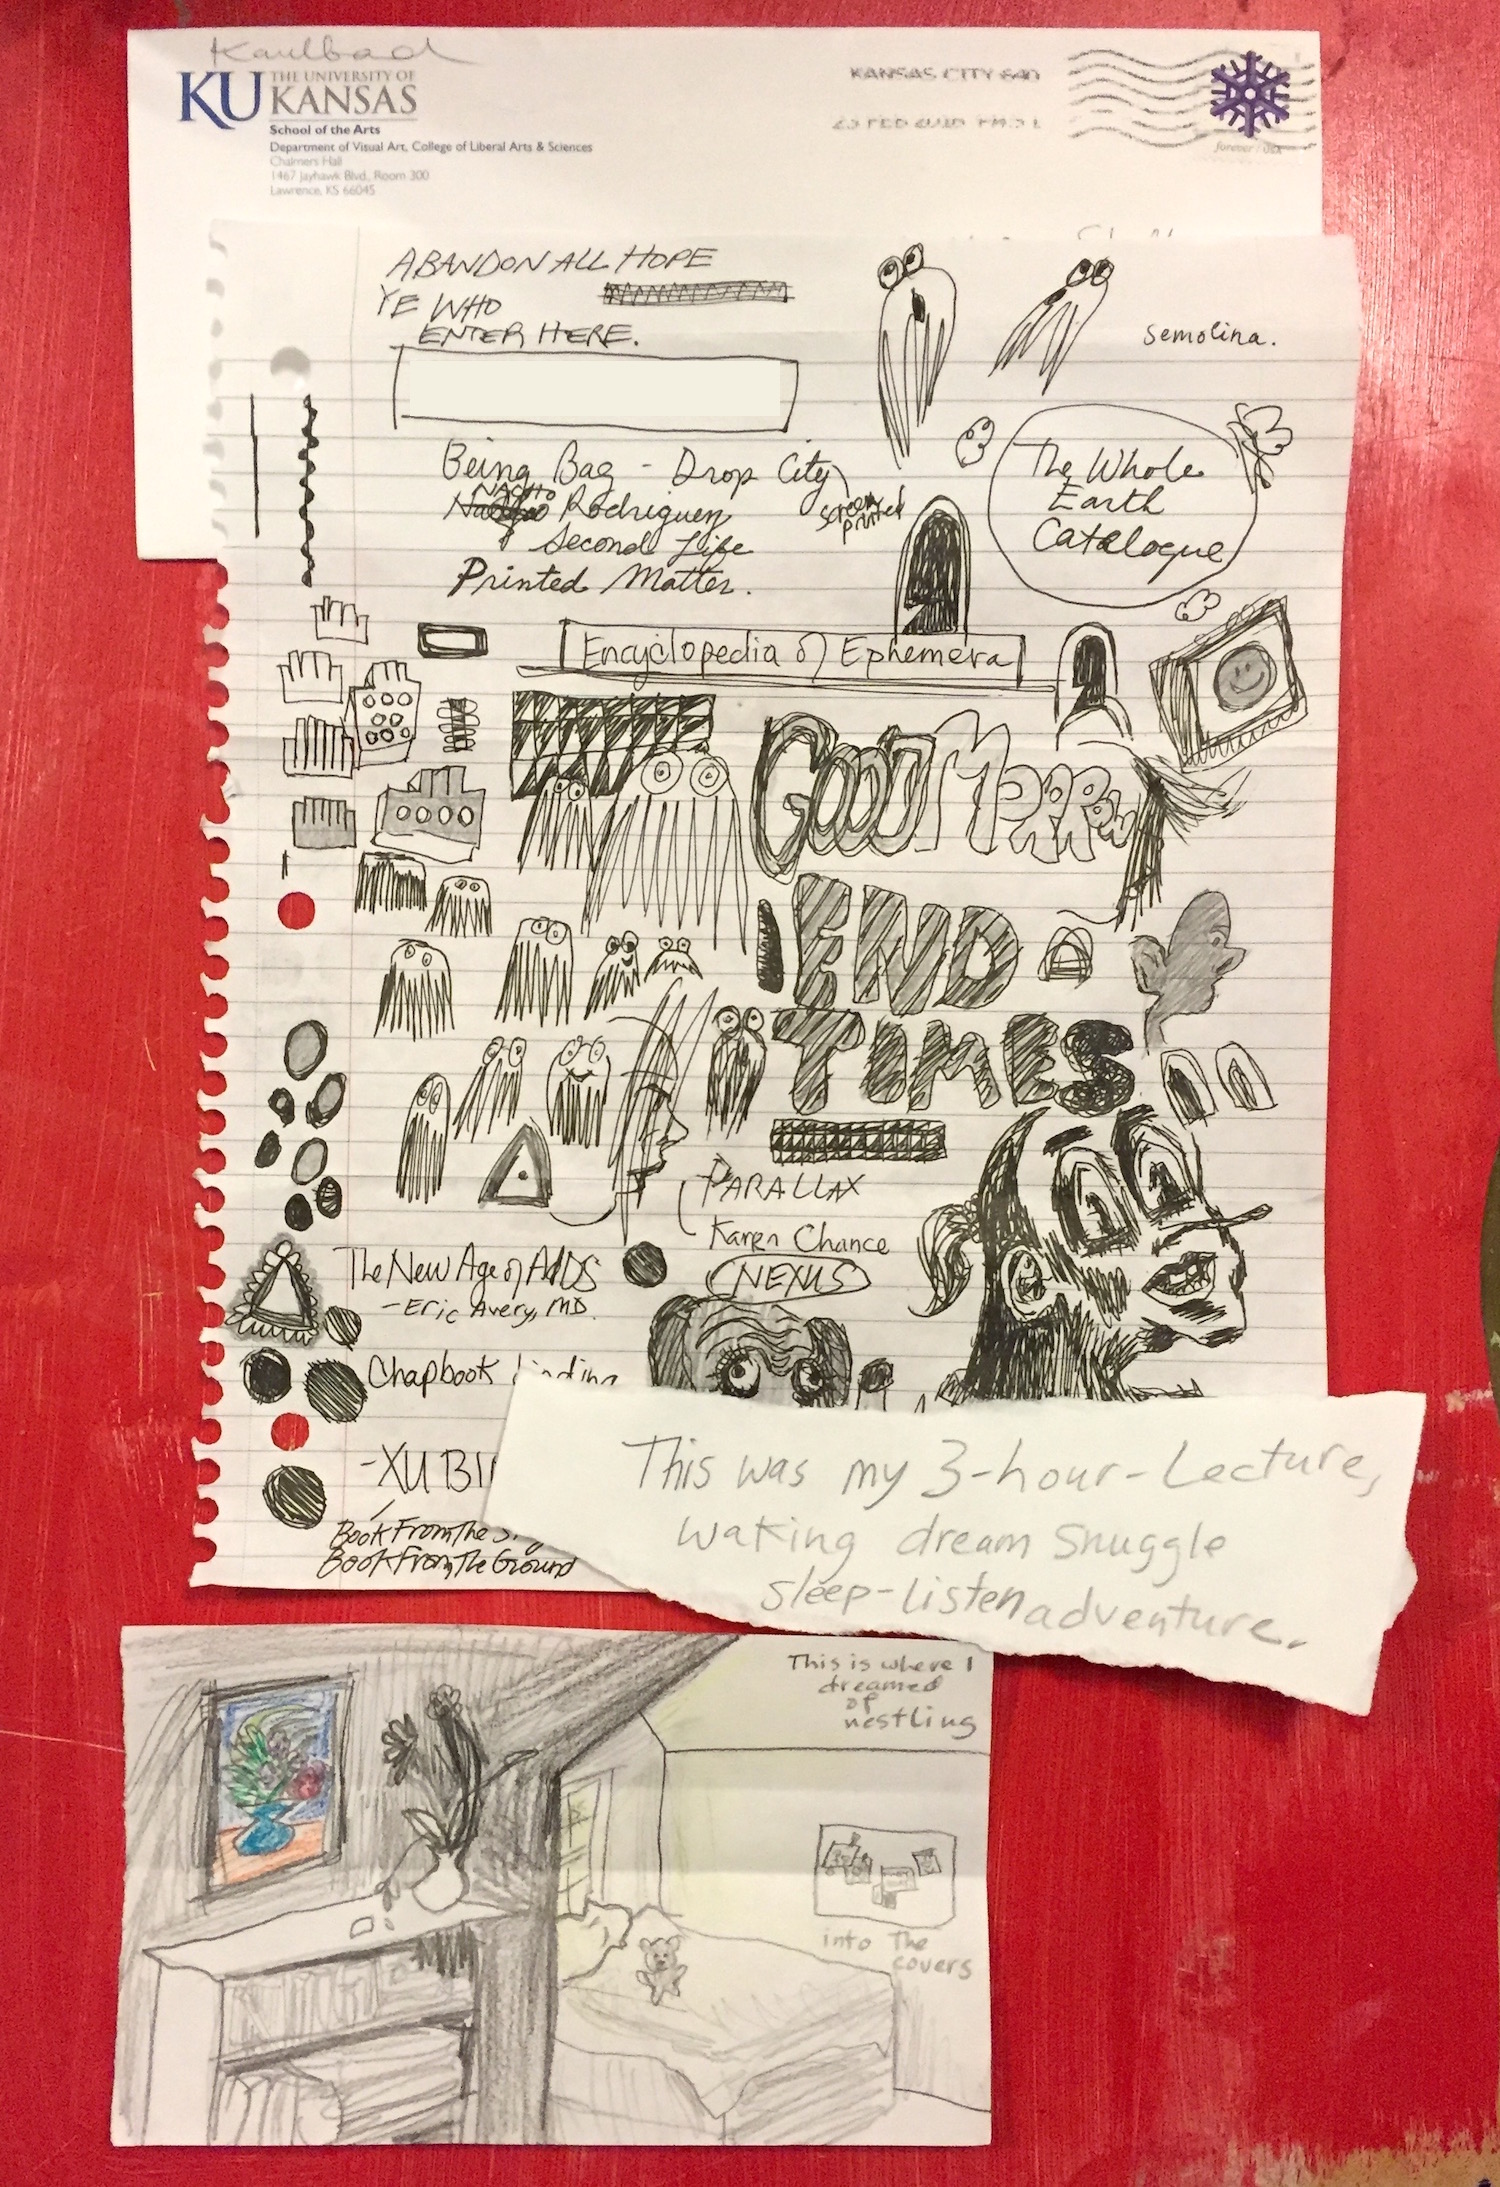 Kaulbach
KU THE UNIVERSITY OF
KANSAS
School of the Arts
Department of Visual Art, College of Liberal Arts & Sciences
Chalmers Hall
1467 Jayhawk Blvd., Room 300
Lawrence, KS 66045
KANSAS CITY 640
23 FEB
forever / USA
ABANDON ALL HOPE
YE WHO
ENTER HERE.
semolina.
Being Bag - Drop City
NACHO
Rodriguez
screen
printed
Second Life
Printed Matter.
The Whole
Earth
Catalogue
Encyclopedia of Ephemera
GOOD MORROW
END
TIMES
PARALLAX
Karen Chance
NEXUS
The New Age of AIDS
- Eric Avery, MD.
Chapbook binding
- XU BI
Book From The S
Book From The Ground
This was my 3-hour-Lecture,
waking dream snuggle
sleep-listen adventure.
This is where I
dreamed
of
nestling
into The
covers